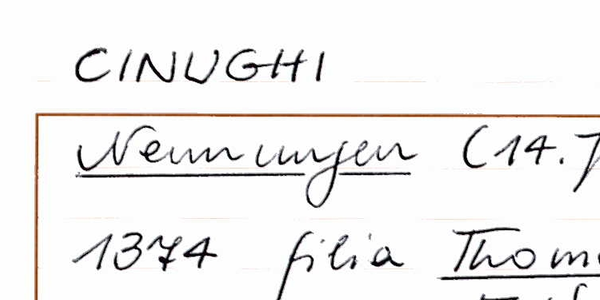 CINUGHI
Nennungen (14.
1374 filia